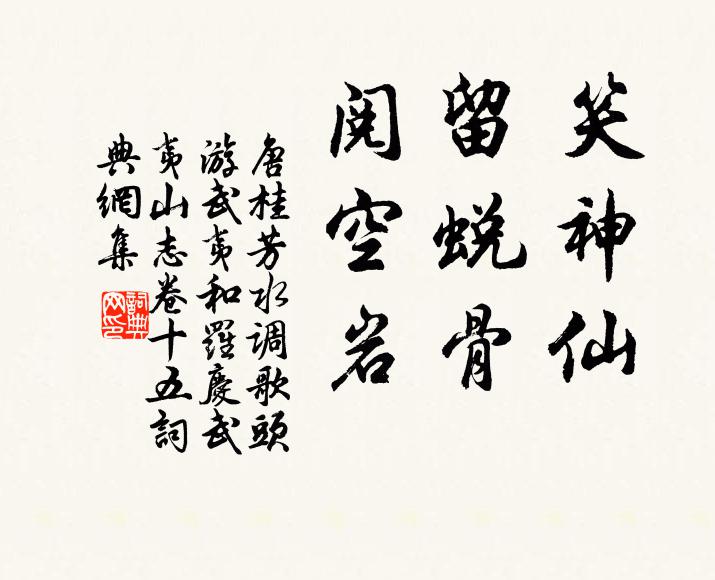 笑神仙
留蜕骨
阅空岩
唐桂芳水调歌頭
游武夷和羅慶武
夷山志卷十五詞
典網集
詞典
网印